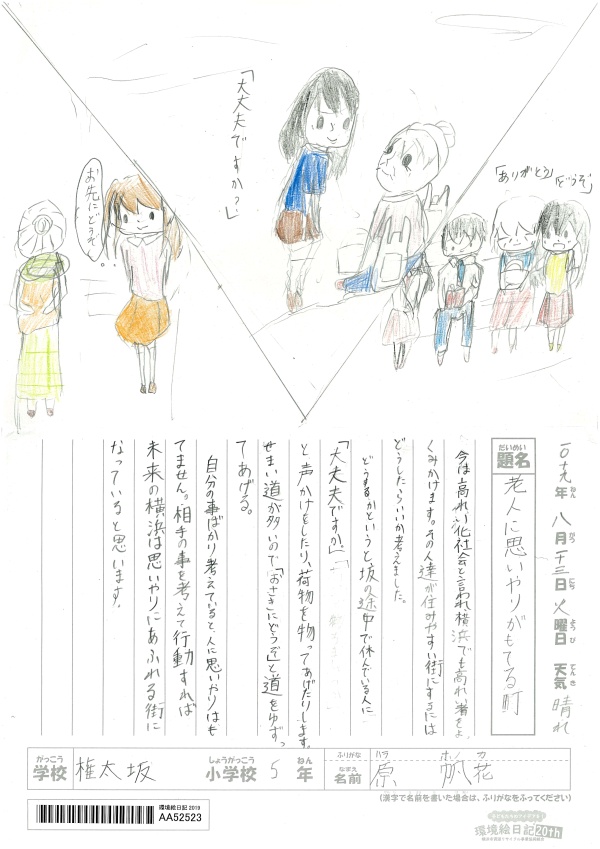 「大丈夫ですか?」
お先にどうぞ
「ありがとう」
「どうぞ」
二〇一九年 八月 十三日 火曜日 天気 晴れ
ねん がつ にち ようび てんき
だいめい
題名
老人に思いやりがもてる町
今は高れい化社会と言われ横浜でも高れい者をよ
くみかけます。その人達が住みやすい街にするには
どうしたらいいか考えました。
どうするかというと坂の途中で休んでいる人に
「大丈夫ですか」
と声かけをしたり、荷物を物ってあげたりします。
せまい道が多いので「おさきにどうぞ」と道をゆずっ
てあげる。
自分の事ばかり考えていると、人に思いやりはも
てません。相手の事を考えて行動すれば
未来の横浜は思いやりにあふれる街に
なっていると思います。
がっこう
学校
権太坂
しょうがっこう
小学校
5
ねん
年
ふりがな
なまえ
名前
ハラ ホノカ
原 帆花
(漢字で名前を書いた場合は、ふりがなをふってください)
環境絵日記 2019
AA52523
環境絵日記 20th